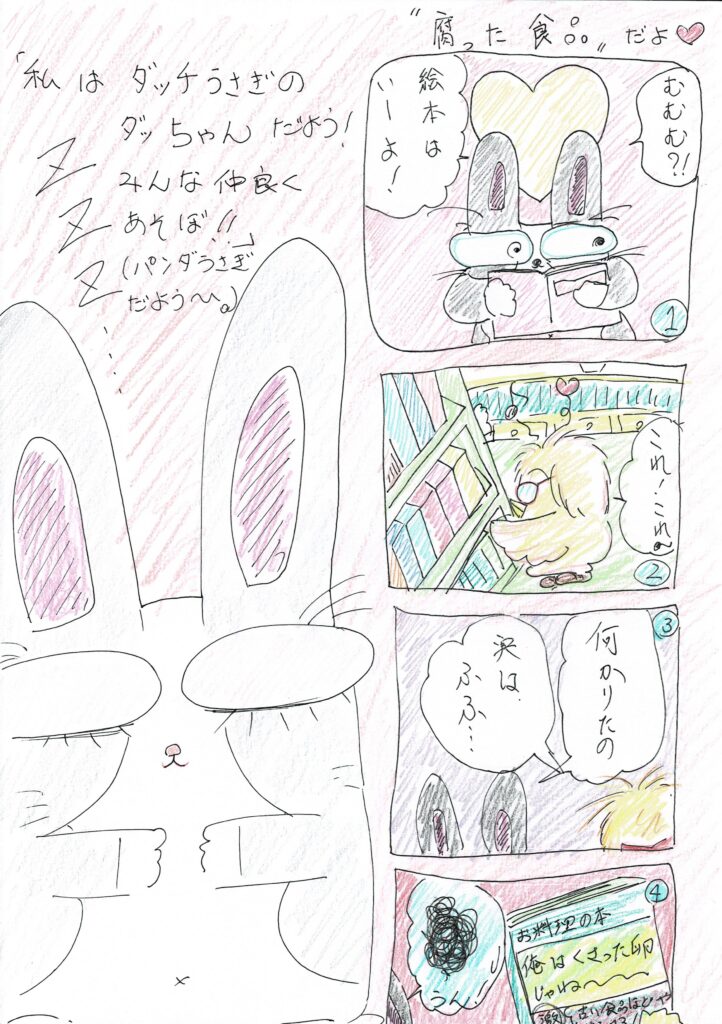 "腐った食品"だよ
「私はダッチうさぎの
ダッちゃんだよう!
みんな仲良く
あそぼ!!」
(パンダうさぎ
だよう〜。)
Z
Z
Z
むむむ?!
絵本は
いーよ!
1
これ!これ〜
2
何かりたの
実は
ふふ…
3
お料理の本
俺はくさった卵
じゃね〜〜〜
うん!
4